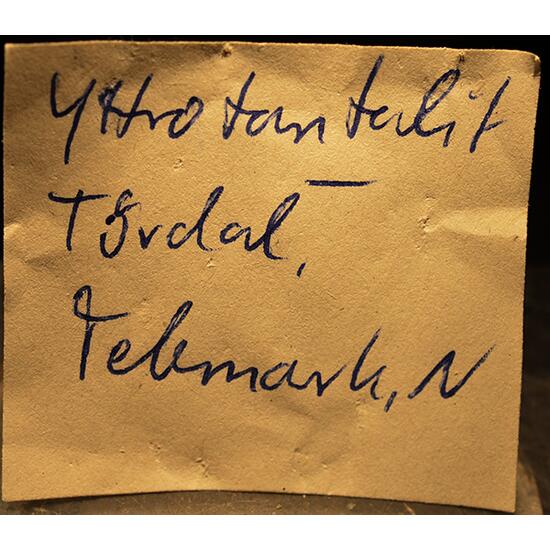 Yttrotantalit
Tördal,
Telemark, N